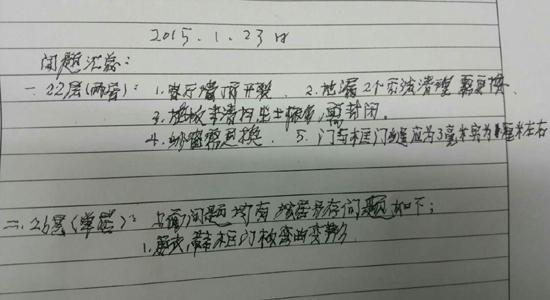 2015.1.23日
问题汇总：
一.22层(两管)：1.客厅墙顶开裂 2.地漏2个无法清理需更换.
3.地板未清扫,尘土很多,需封闭.
4.纱窗需更换 5.门与框门缝应为3毫米实为1厘米左右
二.26层(单层)：上面问题均有 单层另存问题如下：
1. 带框门板弯曲变形